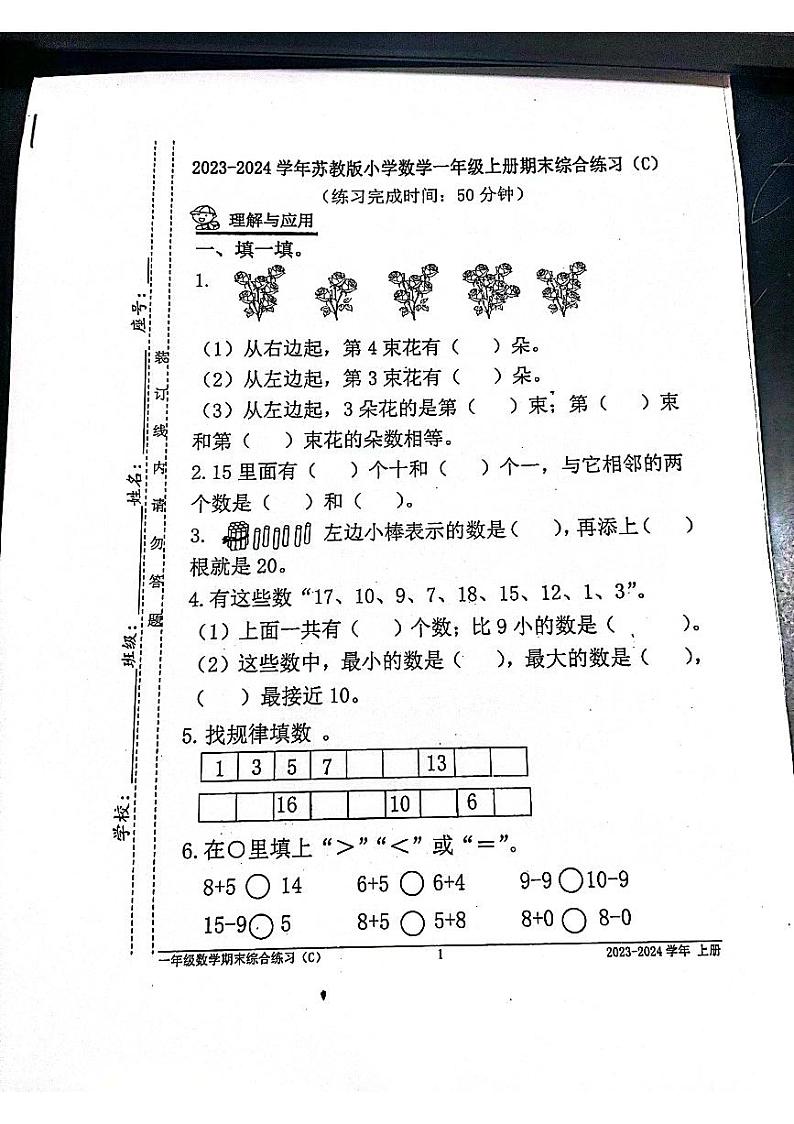 2023-2024 学年苏教版小学数学一年级上册期末综合练习（C）
（练习完成时间：50 分钟）
理解与应用
一、填一填。
1.
（1）从右边起，第 4 束花有（ ）朵。
（2）从左边起，第 3 束花有（ ）朵。
（3）从左边起，3 朵花的是第（ ）束；第（ ）束
和第（ ）束花的朵数相等。
2.15 里面有（ ）个十和（ ）个一，与它相邻的两
个数是（ ）和（ ）。
3. 左边小棒表示的数是（ ），再添上（ ）
根就是 20。
4.有这些数“17、10、9、7、18、15、12、1、3”。
（1）上面一共有（ ）个数；比 9 小的数是（ ）。
（2）这些数中，最小的数是（ ），最大的数是（ ），
（ ）最接近 10。
5.找规律填数 。
1 3 5 7 13
16 10 6
6.在○里填上“＞”“＜”或“＝”。
8+5 ○ 14 6+5 ○ 6+4 9-9 ○ 10-9
15-9 ○ 5 8+5 ○ 5+8 8+0 ○ 8-0
一年级数学期末综合练习（C） 1 2023-2024 学年 上册
学校： 班级： 姓名： 座号：
装订线内请勿答题